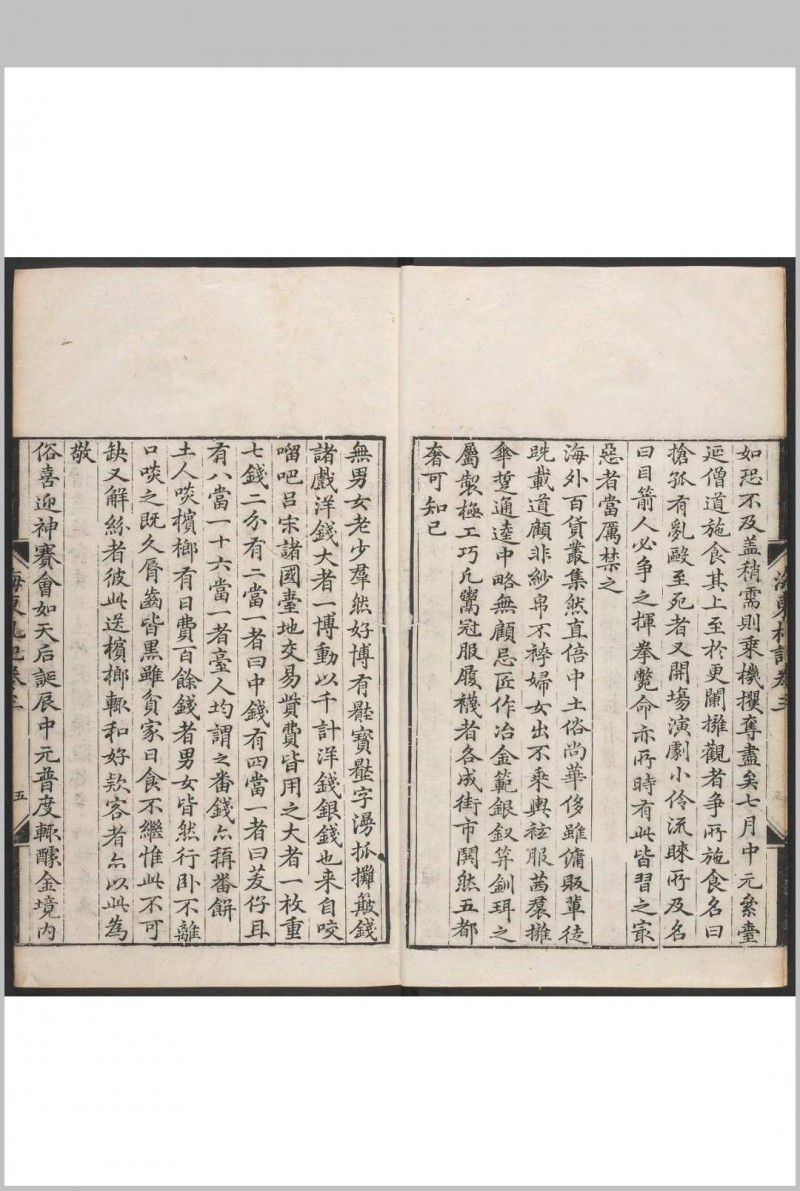 如恐不及盖稍需則乘機攫奪盡矣七月中元祭臺
延僧道施食其上至於更闌擁觀者爭所施食名曰
搶孤有亂毆至死者又開場演劇小伶流睞所及名
曰目箭人必爭之揮拳斃命亦所時有此皆習之最
惡者當厲禁之
海外百貨叢集然直倍中土俗尚華侈雖傭販輩徒
跣載道顧非紗帛不袴婦女出不乘輿袨服茜裠擁
傘踅通逵中略無顧忌匠作冶金範銀釵笄釧珥之
屬製極工巧凡鬻冠服履襪者各成街市鬨然五都
奢可知已
無男女老少羣然好博有壓寶壓字漫抓攤簸錢
諸戲洋錢大者一博動以千計洋錢銀錢也来自咬
𠺕吧呂宋諸國臺地交易貲費皆用之大者一枚重
七錢二分有二當一者曰中錢有四當一者曰茇仔且
有八當一十六當一者臺人均謂之番錢亦稱番餅
土人啖檳榔有日費百餘錢者男女皆然行卧不離
口啖之既久脣齒皆黑雖貧家日食不繼惟此不可
缺又解紛者彼此送檳榔輒和好款客者亦以此為
敬
俗喜迎神賽會如天后誕辰中元普度輒醵金境内
海東札記卷三
五